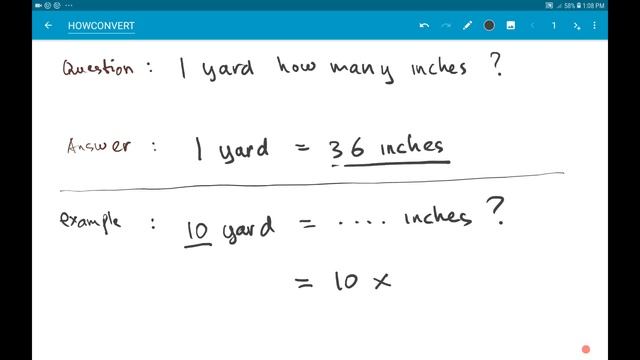 58% 1:08 PM
HOWCONVERT 1
Question : 1 yard how many inches ?
Answer : 1 yard = 36 inches
example : 10 yard = .... inches ?
= 10 x